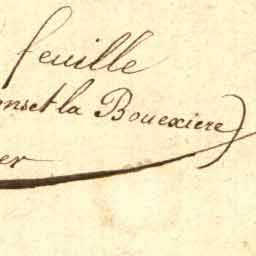 feuille
la Bouexiere)
er